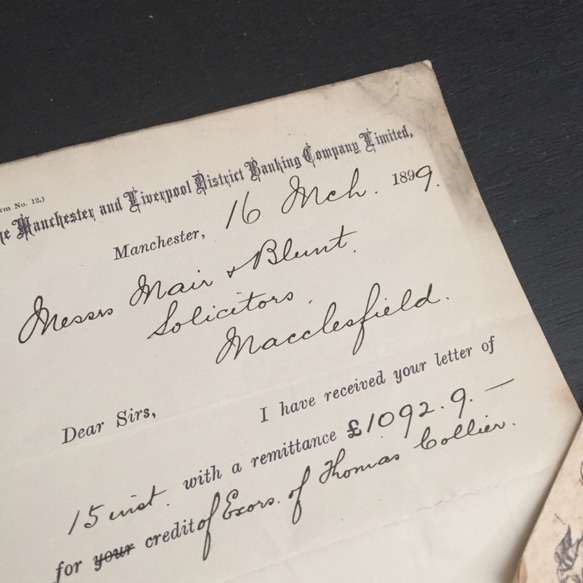 rm No. 12.)
he Manchester and Liverpool District Banking Company Limited,
Manchester, 16 Mch. 1899.
Messrs Mair & Blunt.
Solicitors,
Macclesfield.
Dear Sirs,
I have received your letter of
15 inst. with a remittance £1092.9.—
for your credit of Exors. of Thomas Collier.